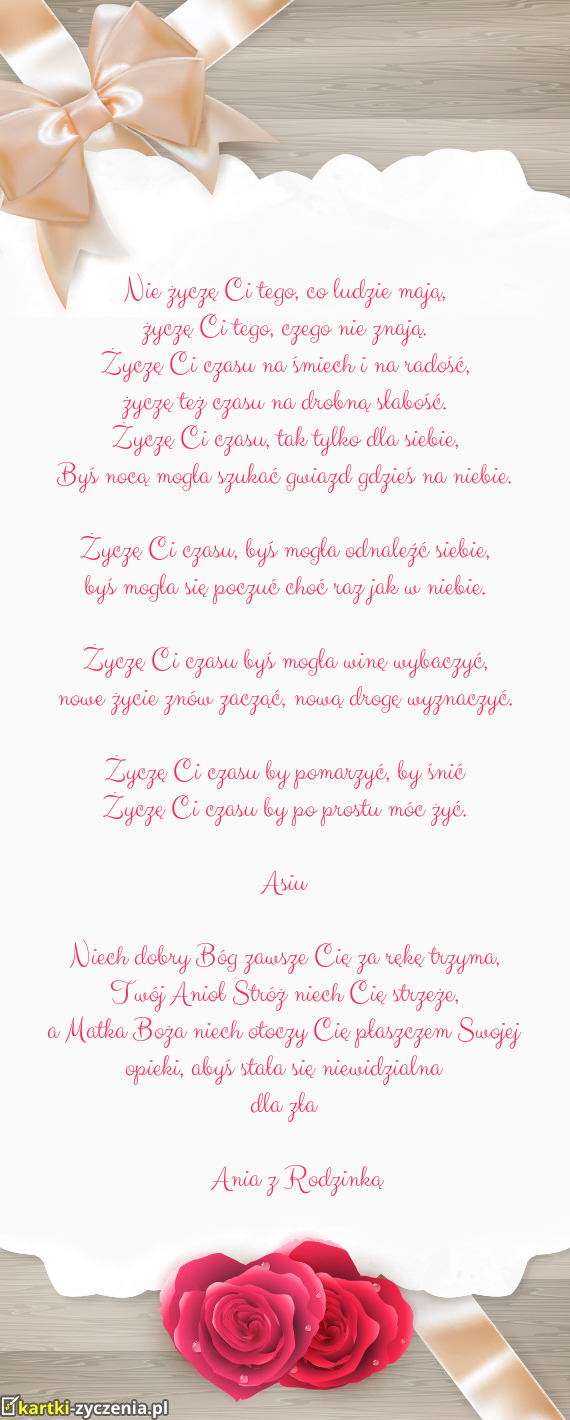 Nie życzę Ci tego, co ludzie mają,
życzę Ci tego, czego nie znają.
Życzę Ci czasu na śmiech i na radość,
życzę też czasu na drobną słabość.
Życzę Ci czasu, tak tylko dla siebie,
Byś nocą mogła szukać gwiazd gdzieś na niebie.
Życzę Ci czasu, byś mogła odnaleźć siebie,
byś mogła się poczuć choć raz jak w niebie.
Życzę Ci czasu byś mogła winę wybaczyć,
nowe życie znów zacząć, nową drogę wyznaczyć.
Życzę Ci czasu by pomarzyć, by śnić
Życzę Ci czasu by po prostu móc żyć.
Asiu
Niech dobry Bóg zawsze Cię za rękę trzyma,
Twój Anioł Stróż niech Cię strzeże,
a Matka Boża niech otoczy Cię płaszczem Swojej
opieki, abyś stała się niewidzialna
dla zła
Ania z Rodzinką
kartki-zyczenia.pl